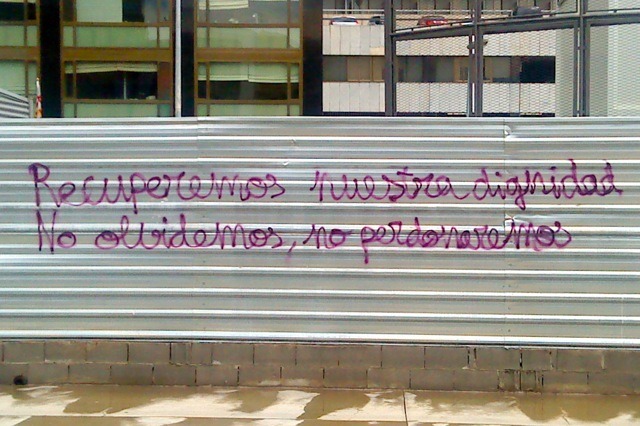 Recuperemos nuestra dignidad
No olvidemos, no perdonaremos